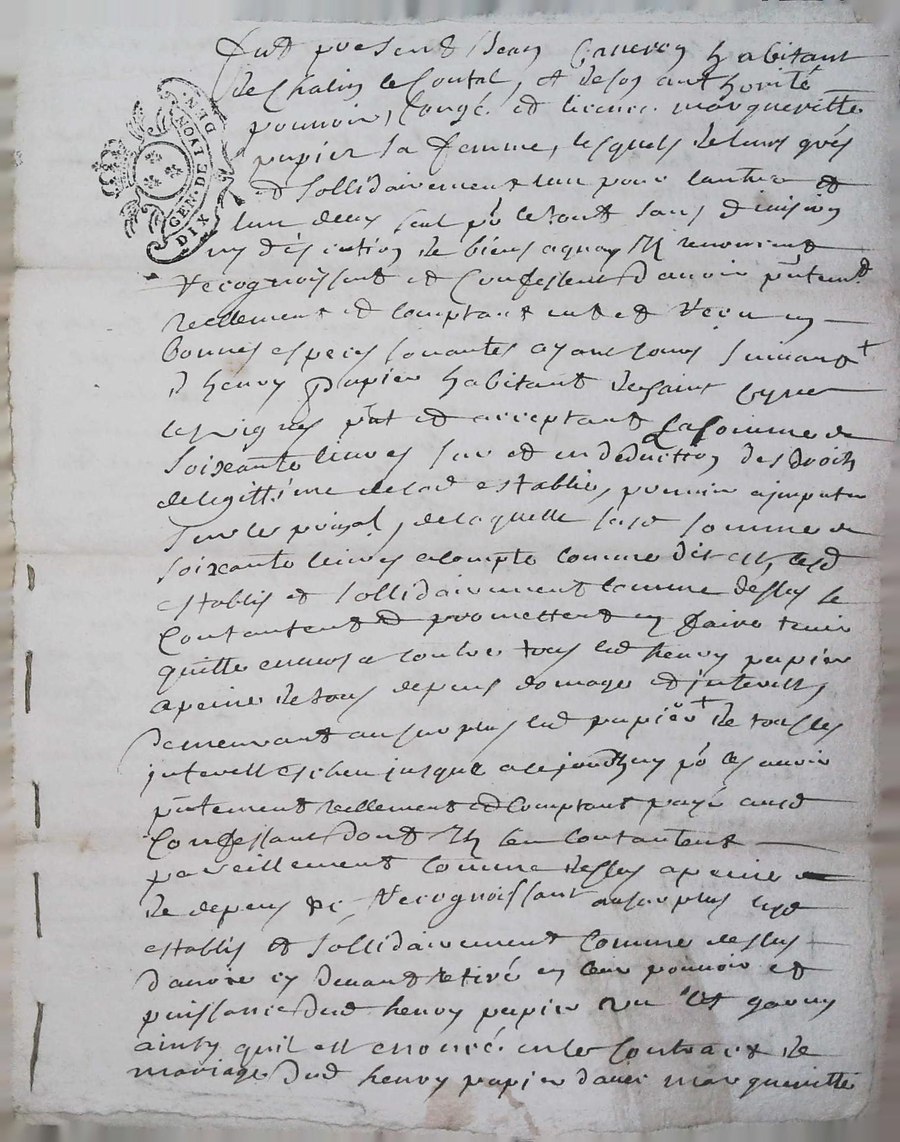 fut present Jean habitant
de Chalin le Contal, et de son authorité
pouvoir, congé et licence margueritte
papier sa femme, lesquels de leurs grés
et sollidairement lun pour lautre et
lun deux seul po le tout sans division
ny discution de biens aquoy ils renoncent
recognoissent et confessent d'avoir pntemt
reellement et comptant eut et receu en
bonnes especes sonantes ayant cours suivant +
d henry papier habitant de saint
pnt et acceptant La somme de
soixante livres sur et en deduction des droits
de legittime de lad establie, pouvoir a jmputer
sur le pnpal, de laquelle lad somme de
soixante livres acompte comme dit est, lesd
establis et sollidairement comme dessus se
contantent et promettent en faire tenir
quitte envers et contre tous led henry papier
a peine de tous depens domage et jnterests,
demeurant au surplus led papier + de tous les
jnterests escheu jusque a ce jourdhuy po les avoir
pntement reellement et comptant payé ausd
Confessant dont ils sen contantent
pareillement comme dessus a peine
de depens &c Recognoissant au surplus lesd
establis et sollidairement comme dessus
d'avoir cy devant retiré en leur pouvoir et
puissance dud henry papier
ainsy quil est enoncé en le Contract de
mariage dud henry papier d'avec marguerite
GEN. DE LYON
DIX DEN.